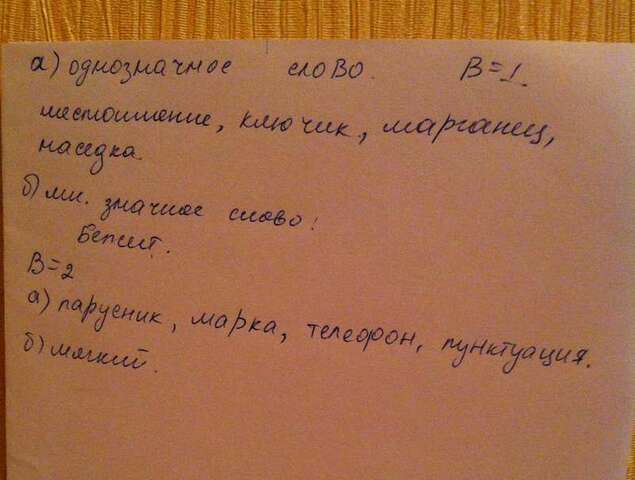 а) однозначное слово. В=1.
местоимение, ключик, марганец,
наседка.
б) мн. значное слово:
Бежит.
В=2
а) парусник, марка, телефон, пунктуация.
б) мягкий.